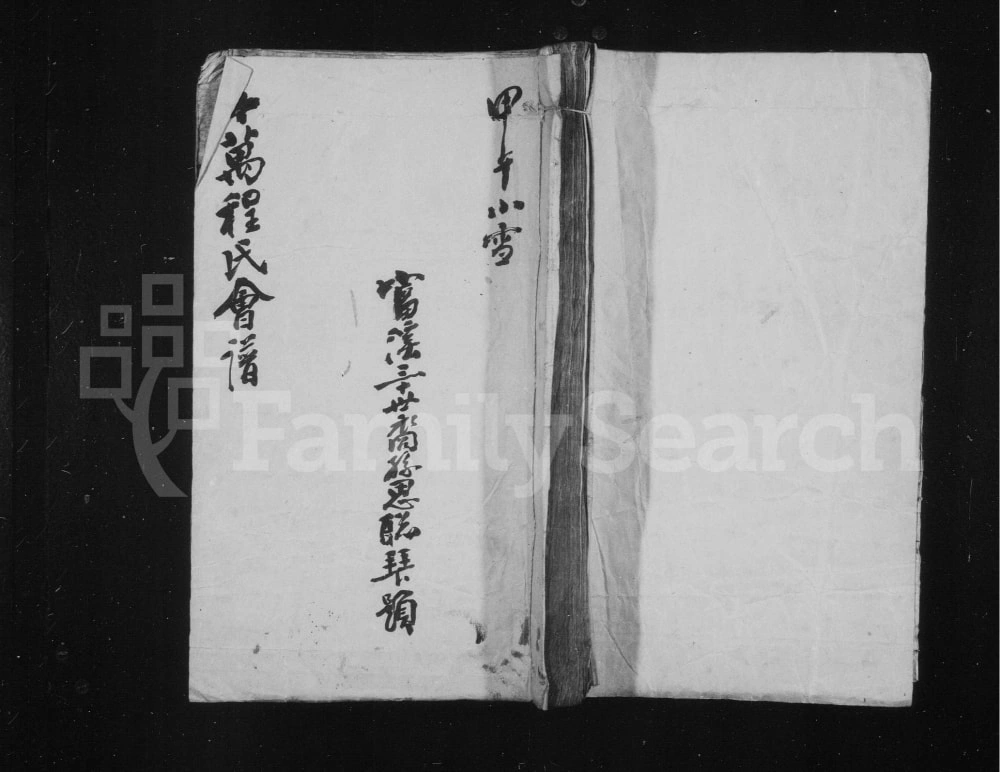 甲午小雪
富溪三十世裔孫思聰題
十萬程氏會譜
FamilySearch